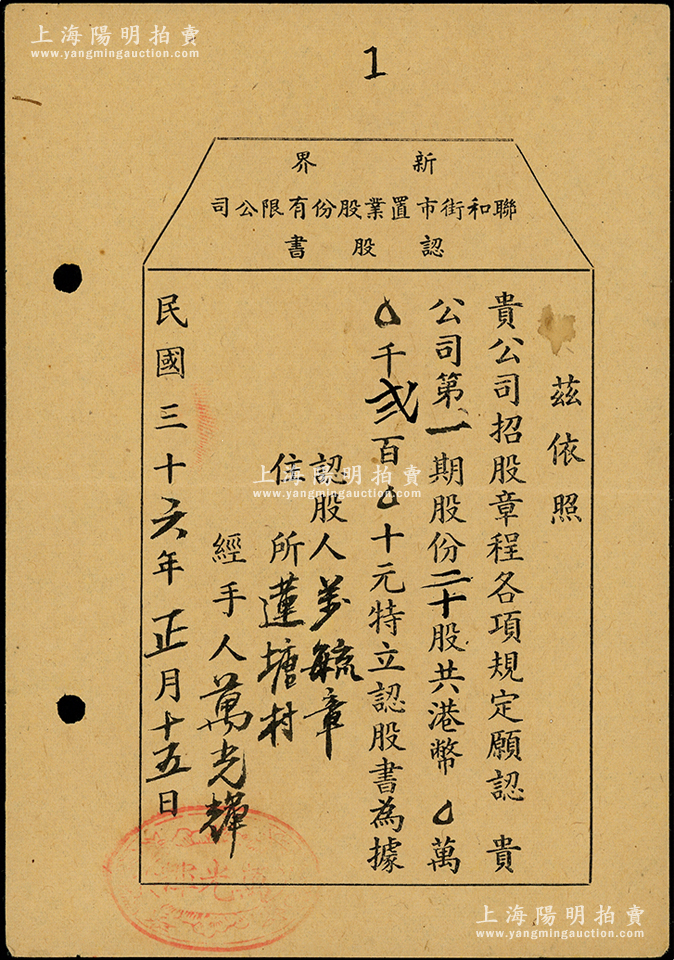 上海陽明拍賣
www.yangmingauction.com
1
新界
聯和街市置業股份有限公司
認股書
茲依照
貴公司招股章程各項規定願認 貴
公司第一期股份二十股共港幣 0萬
0千弍百0十元特立認股書為據
認股人 萬毓章
住所 蓮塘村
經手人 萬光輝
民國三十六年正月十五日
上海陽明拍賣
www.yangmingauction.com
上海陽明拍賣
www.yangmingauction.com